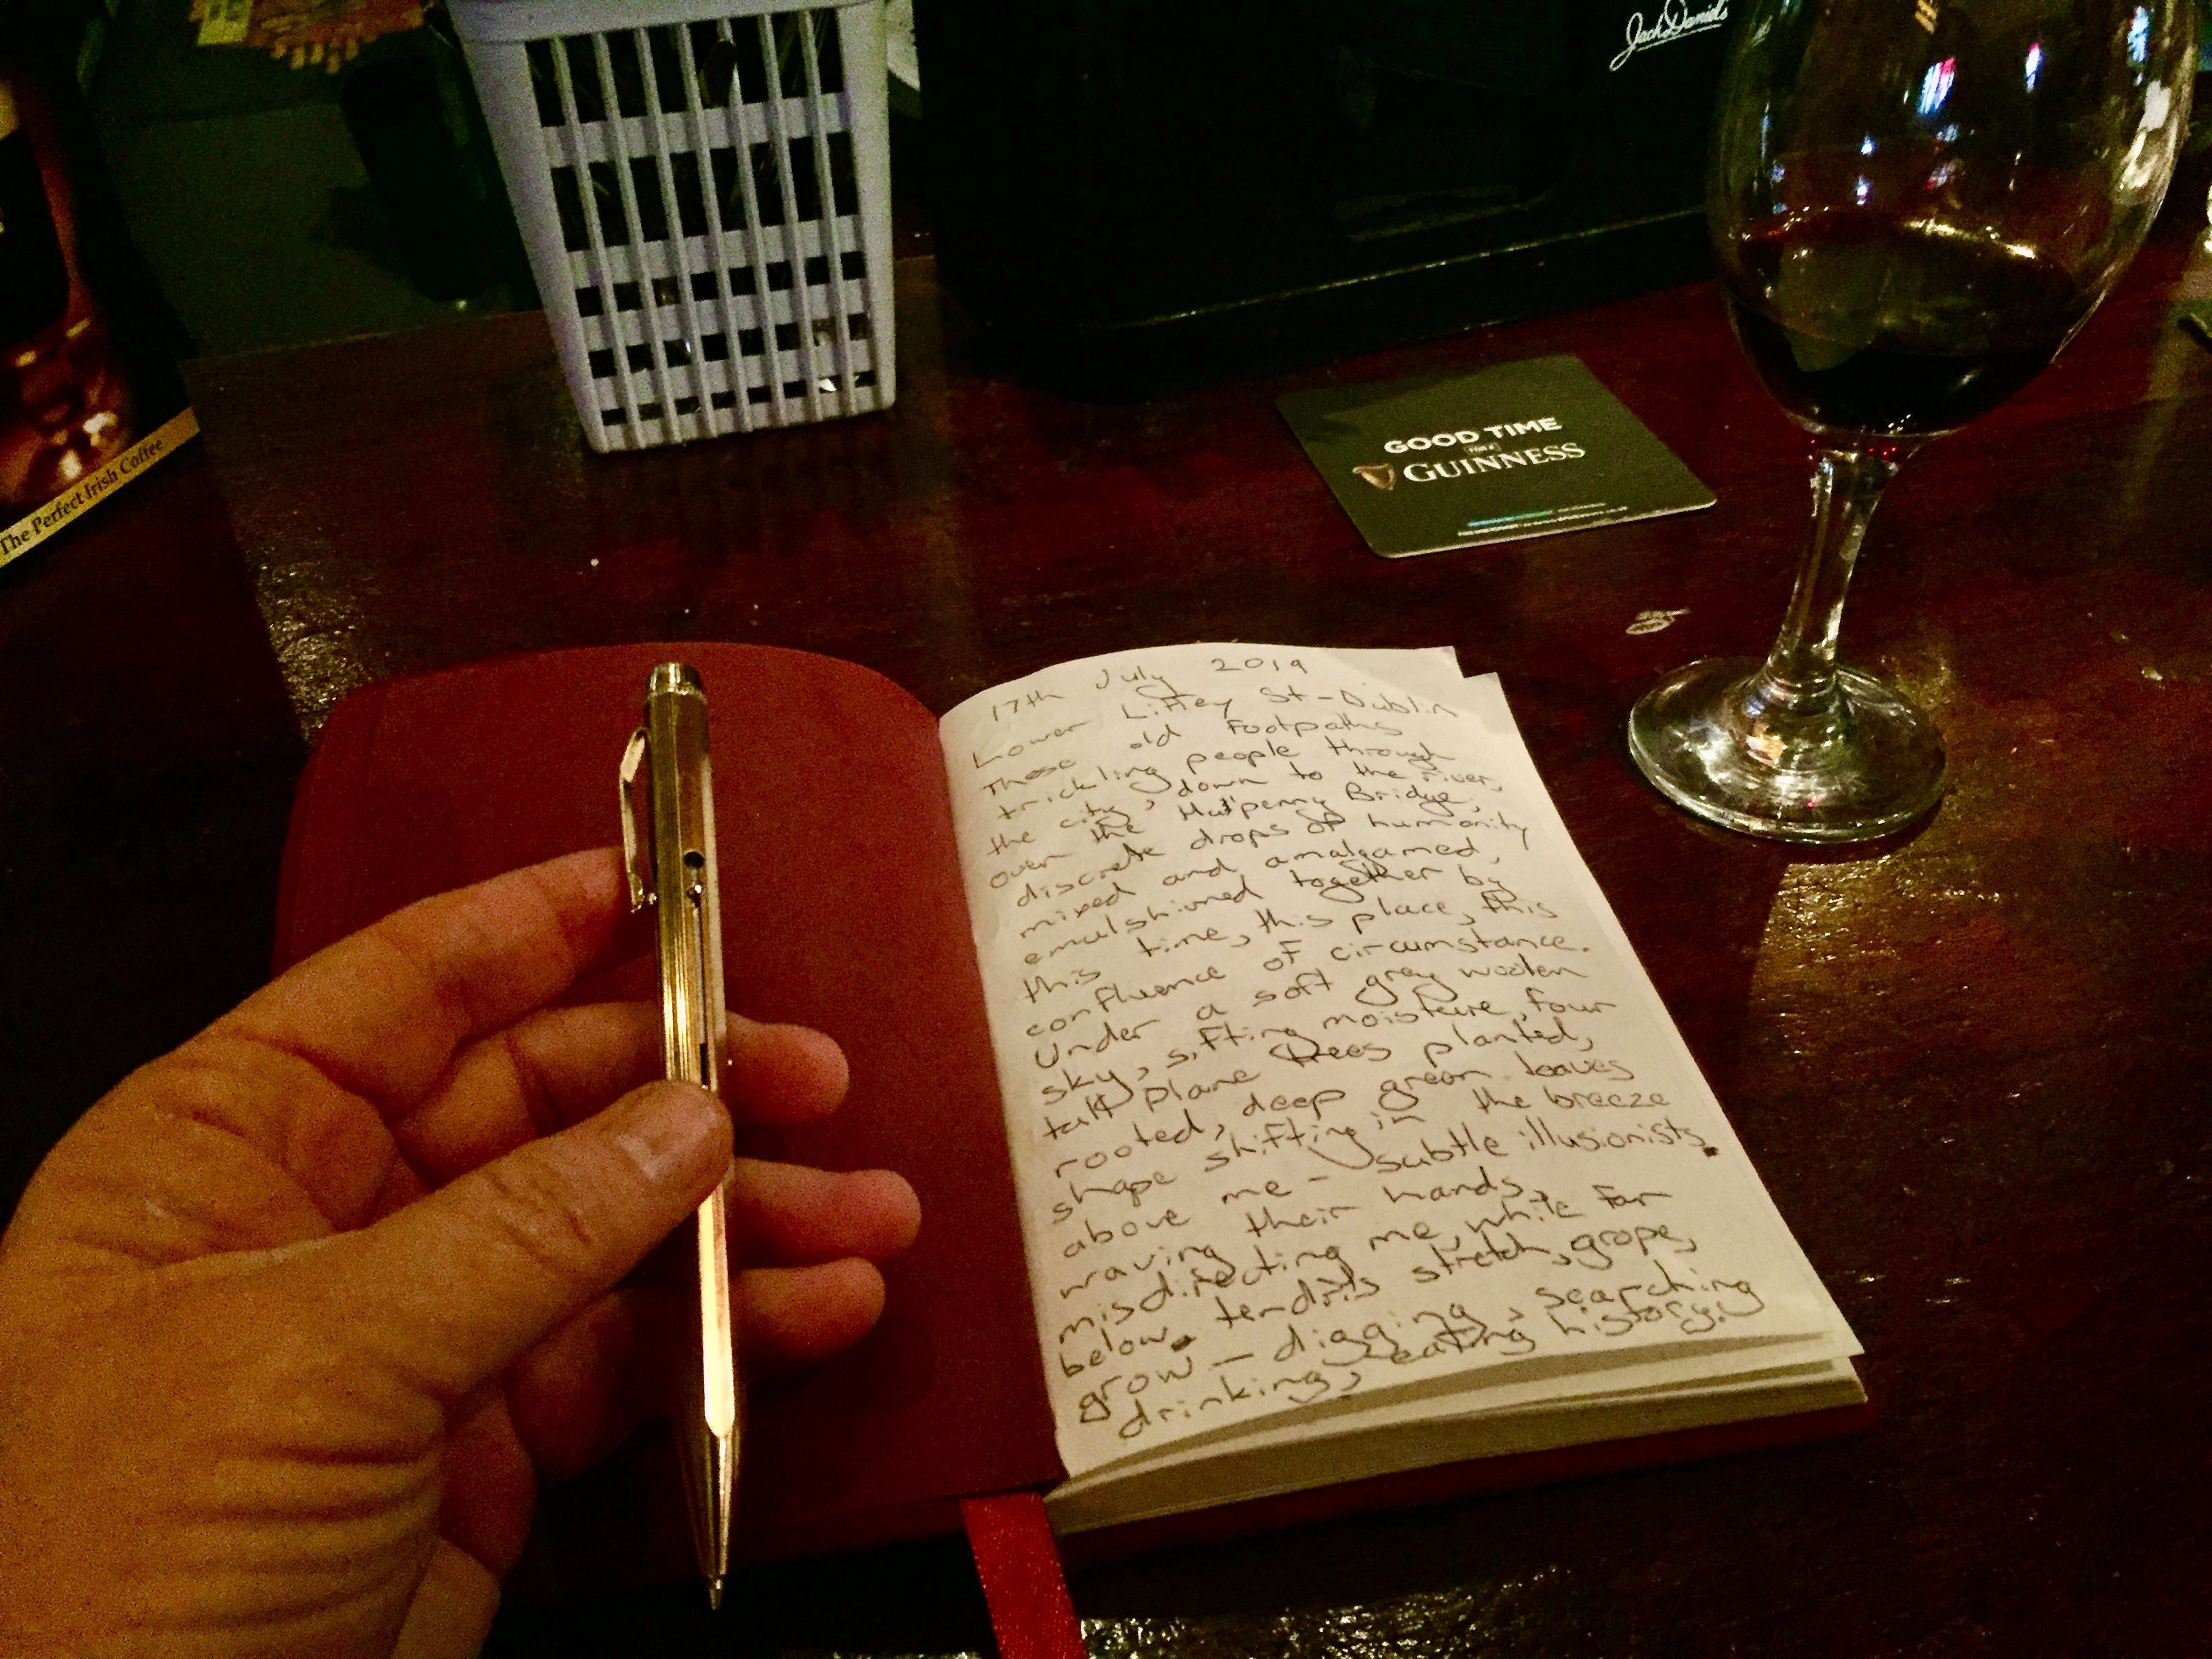 Jack Daniel's
GOOD TIME
FOR A
GUINNESS
The Perfect Irish Coffee
17th July 2019
Lower Liffey St - Dublin
These old footpaths
trickling people through
the city, down to the river,
over the Ha'penny Bridge,
discrete drops of humanity
mixed and amalgamed,
emulshioned together by
this time, this place, this
confluence of circumstance.
Under a soft grey woolen
sky, sifting moisture, four
tall plane trees planted,
rooted, deep green leaves
shape shifting in the breeze
above me - subtle illusionists
waving their hands,
misdirecting me, while far
below tendrils stretch, grope,
grow - digging, searching
drinking, eating history.